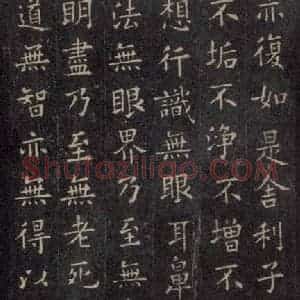 亦復如是舍利子
不垢不淨不增不
想行識無眼耳鼻
法無眼界乃至無
明盡乃至無老死
道無智亦無得以
Shufaziliao.com